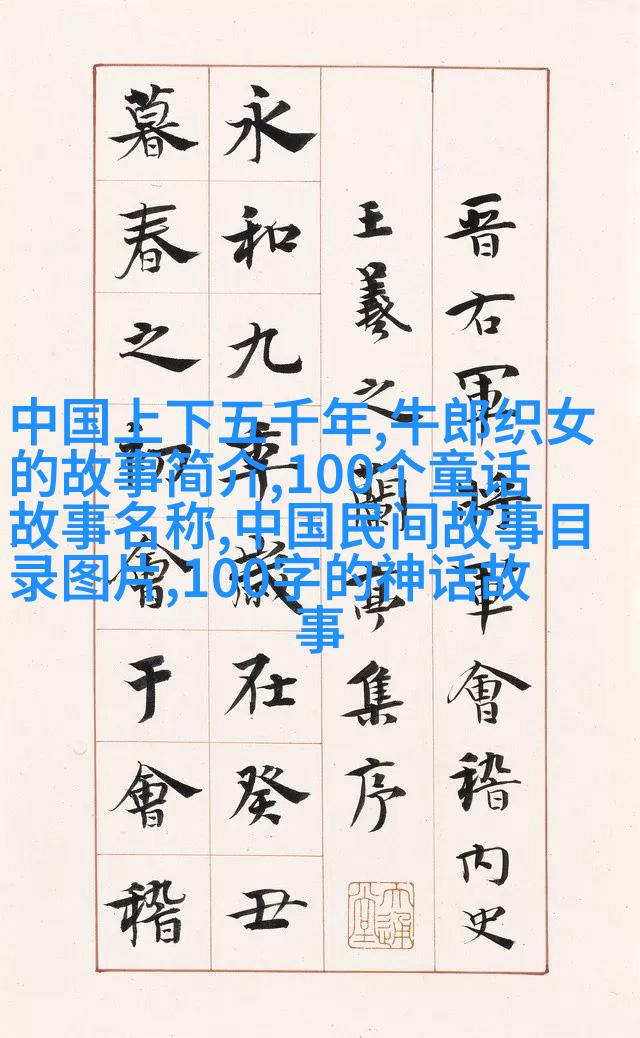 晋右軍將軍會稽内史
王羲之蘭亭集序
永和九年歲在癸丑
暮春之初會于會稽
中国上下五千年,牛郎织女
的故事简介,100个童话
故事名称,中国民间故事目
录图片,100字的神话故
事